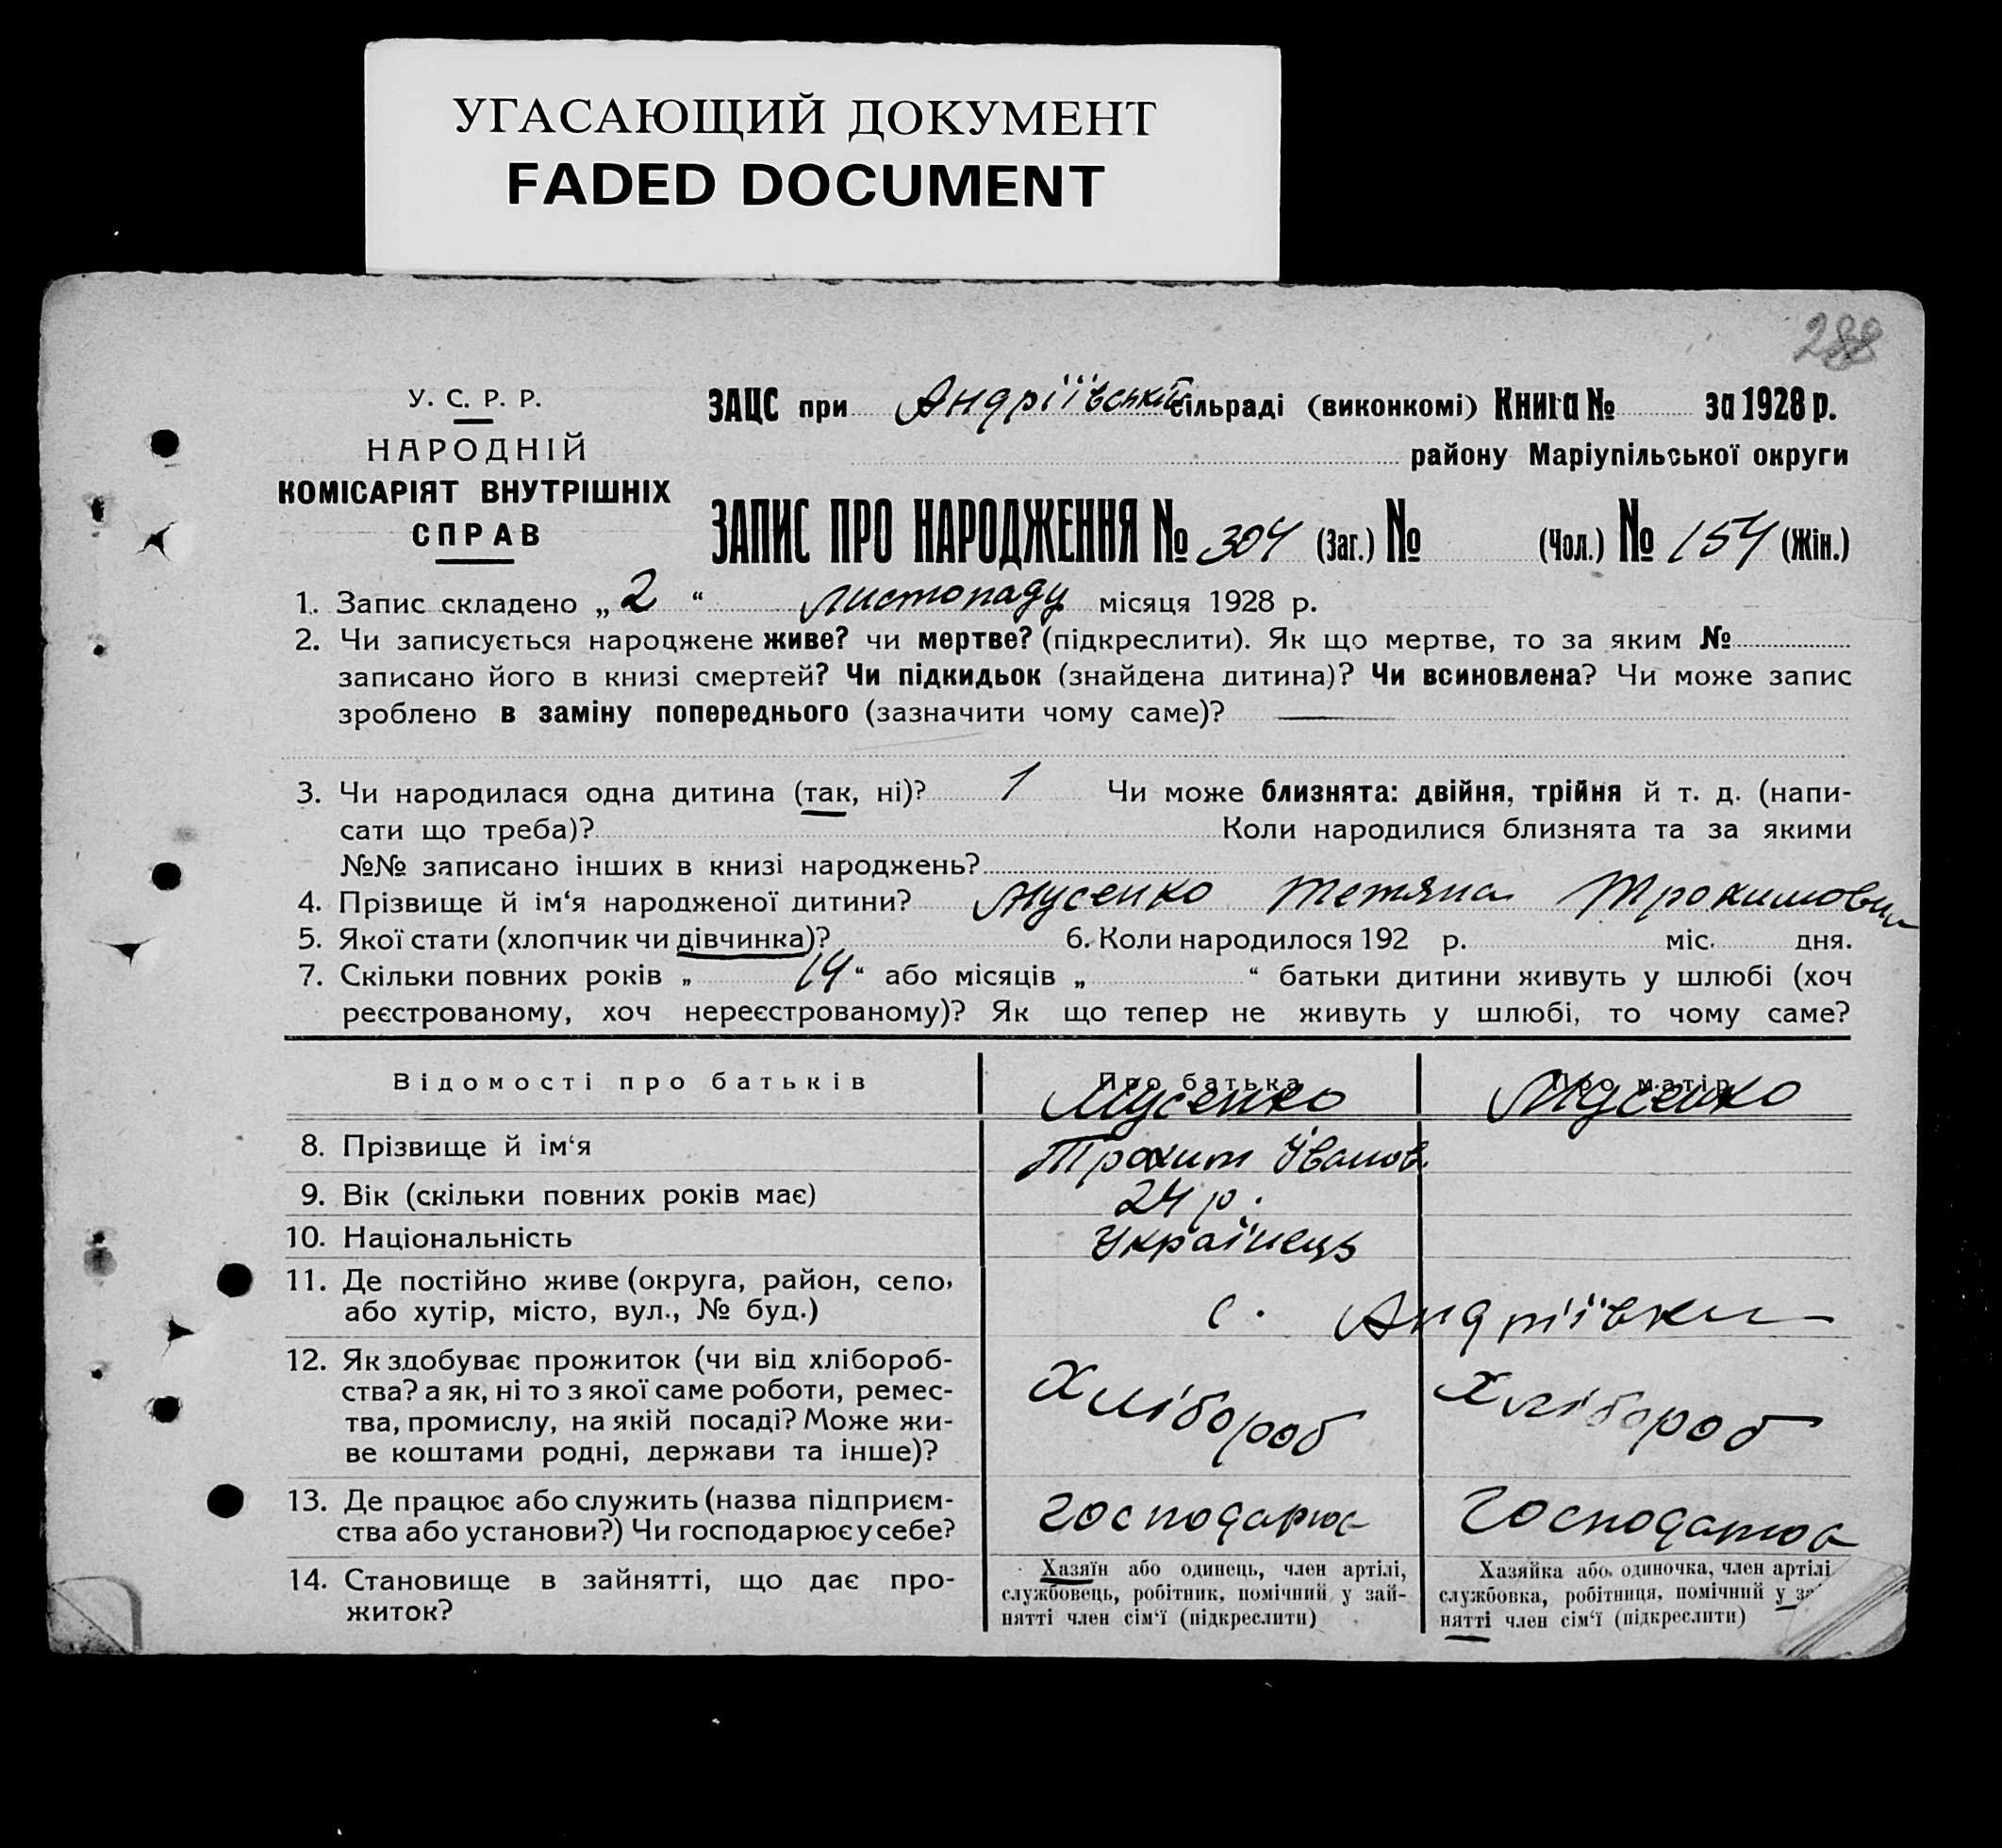 УГАСАЮЩИЙ ДОКУМЕНТ
FADED DOCUMENT
288
У. С. Р. Р.
НАРОДНІЙ
КОМІСАРІЯТ ВНУТРІШНІХ
СПРАВ
ЗАЦС при Андріївській сільраді (виконкомі) Книга № за 1928 р.
району Маріупільської округи
ЗАПИС ПРО НАРОДЖЕННЯ № 304 (Заг.) № (Чол.) № 154 (Жін.)
1. Запис складено „ 2 “ листопаду місяця 1928 р.
2. Чи записується народжене живе? чи мертве? (підкреслити). Як що мертве, то за яким №
записано його в книзі смертей? Чи підкидьок (знайдена дитина)? Чи всиновлена? Чи може запис
зроблено в заміну попереднього (зазначити чому саме)?
3. Чи народилася одна дитина (так, ні)? 1 Чи може близнята: двійня, трійня й т. д. (напи-
сати що треба)? Коли народилися близнята та за якими
№№ записано інших в книзі народжень?
4. Прізвище й ім‘я народженої дитини? Мусенко Тетяна Трохимовна
5. Якої стати (хлопчик чи дівчинка)? 6. Коли народилося 192 р. міс. дня.
7. Скільки повних років „ 14 “ або місяців „ “ батьки дитини живуть у шлюбі (хоч
реєстрованому, хоч нереєстрованому)? Як що тепер не живуть у шлюбі, то чому саме?
Відомості про батьків Про батька Про матір
Мусенко Мусенко
8. Прізвище й ім‘я Трохим Іванов.
9. Вік (скільки повних років має) 24 р.
10. Національність Українець
11. Де постійно живе (округа, район, село,
або хутір, місто, вул., № буд.) с. Андріївки
12. Як здобуває прожиток (чи від хлібороб-
ства? а як, ні то з якої саме роботи, ремес-
тва, промислу, на якій посаді? Може жи-
ве коштами родні, держави та інше)?
Хлібороб Хлібороб
13. Де працює або служить (назва підприєм-
ства або установи?) Чи господарює у себе?
господарює Господарює
14. Становище в зайнятті, що дає про-
житок?
Хазяїн або одинець, член артілі,
службовець, робітник, помічний у зай-
нятті член сім‘ї (підкреслити)
Хазяйка або одиночка, член артілі
службовка, робітниця, помічний у за
нятті член сім‘ї (підкреслити)